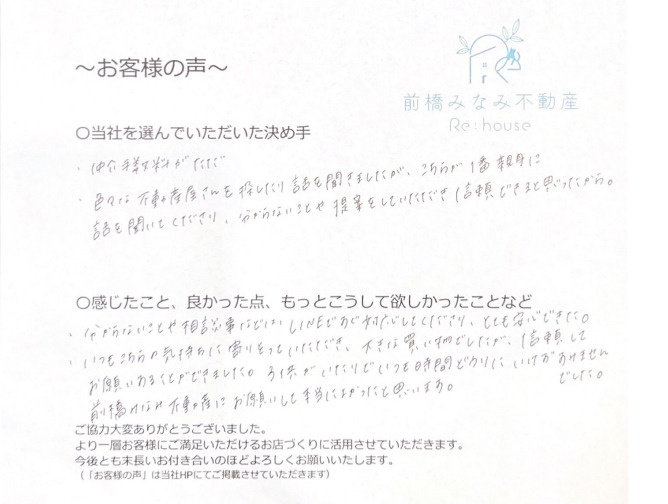 ～お客様の声～
前橋みなみ不動産
Re:house
〇当社を選んでいただいた決め手
・仲介手数料がただ
・色々な不動産屋さんを探したり話を聞きましたが、こちらが1番親身に
話を聞いてくださり、分からないことや提案をしていただき信頼できると思ったから。
〇感じたこと、良かった点、もっとこうして欲しかったことなど
・分からないことや相談事などはLINEで対応してくださり、とても安心できた。
・いつもこちらの気持ちに寄りそっていただき、大きな買い物でしたが、信頼して
お願いすることができました。子供がいたりでいつも時間どおりにいけずすみません
でした。
前橋みなみ不動産にお願いして本当によかったと思います。
ご協力大変ありがとうございました。
より一層お客様にご満足いただけるお店づくりに活用させていただきます。
今後とも末長いお付き合いのほどよろしくお願いいたします。
（「お客様の声」は当社HPにてご掲載させていただきます）